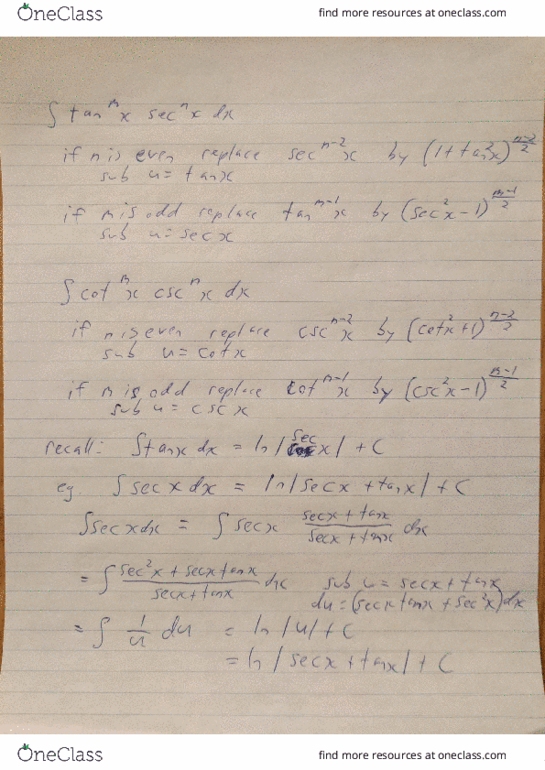 OneClass
find more resources at oneclass.com
∫ tanᵐx secⁿx dx
if n is even replace secⁿ⁻²x by (1+tan²x)^((n-2)/2)
sub u = tanx
if m is odd replace tanᵐ⁻¹x by (sec²x-1)^((m-1)/2)
sub u = secx
∫ cotᵐx cscⁿx dx
if n is even replace cscⁿ⁻²x by (cot²x+1)^((n-2)/2)
sub u = cotx
if m is odd replace cotᵐ⁻¹x by (csc²x-1)^((m-1)/2)
sub u = cscx
recall: ∫tanx dx = ln|secx| + C
eg. ∫ secx dx = ln|secx + tanx| + C
∫secxdx = ∫ secx (secx + tanx)/(secx + tanx) dx
= ∫ (sec²x + secxtanx)/(secx+tanx) dx sub u = secx + tanx
du = (secxtanx + sec²x)dx
= ∫ 1/u du = ln|u| + C
= ln|secx + tanx| + C
OneClass
find more resources at oneclass.com